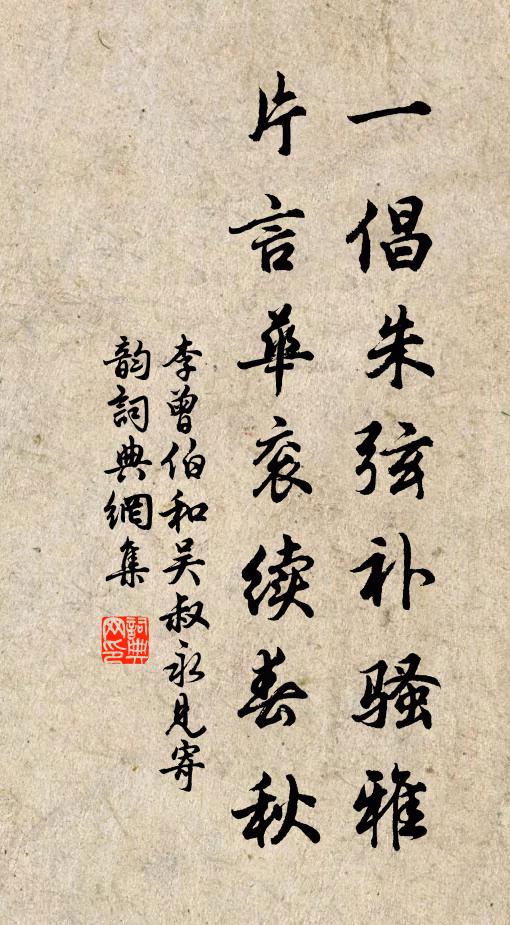 一倡朱弦补骚雅
片言华衮续春秋
李曾伯和吴叔永见寄
韵詞典網集
詞典网印